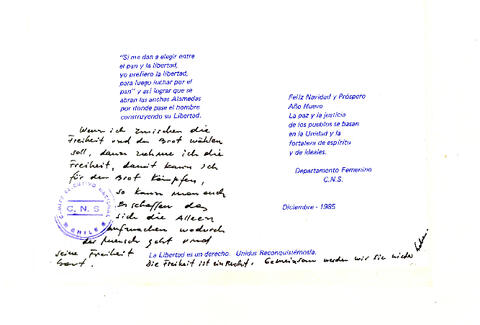 "Si me dan a elegir entre
el pan y la libertad,
yo prefiero la libertad,
para luego luchar por el
pan" y así lograr que se
abran las anchas Alamedas
por donde pase el hombre
construyendo su Libertad.
Wenn ich zwischen die
Freiheit und das Brot wählen
soll, dann nehme ich die
Freiheit, damit kann ich
für den Brot kämpfen,
so kann man auch
erschaffen das
sich die Alleen
aufmachen wodurch
der Mensch geht und
seine Freiheit
baut.
COMITE EJECUTIVO NACIONAL
C. N. S
CHILE
Feliz Navidad y Próspero
Año Nuevo
La paz y la justicia
de los pueblos se basan
en la Unidad y la
fortaleza de espíritu
y de ideales.
Departamento Femenino
C.N.S.
Diciembre - 1985
La Libertad es un derecho. Unidos Reconquistémosla.
Die Freiheit ist ein Recht. Gemeinsam werden wir sie wieder